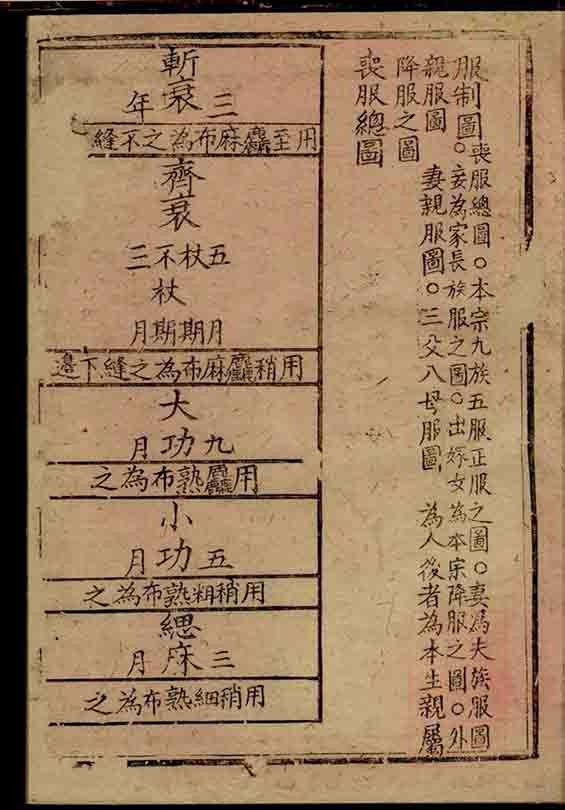 服制圖○
喪服總圖○本宗九族五服正服之圖○妻為夫族服圖
妾為家長族服之圖○出嫁女為本宗降服之圖○外
親服圖 妻親服圖○三父八母服圖 為人後者為本生親屬
降服之圖
喪服總圖
斬衰
三年
用至麤麻布為之不縫
齊衰
五月
杖期
不杖期
三月
用稍麤麻布為之縫下邊
大功
九月
用麤熟布為之
小功
五月
用稍粗熟布為之
緦麻
三月
用稍細熟布為之